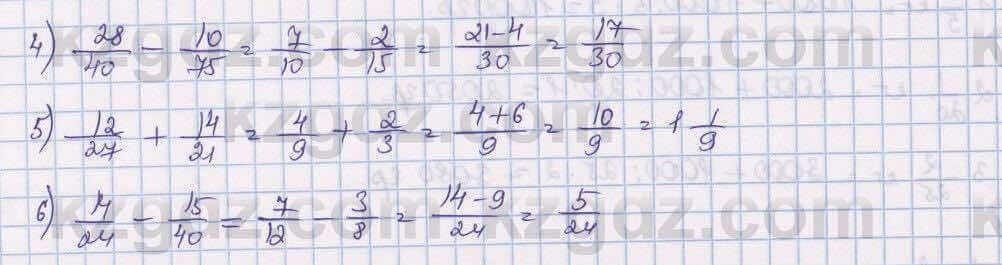 4) 28/40 - 10/75 = 7/10 - 2/15 = 21-4/30 = 17/30
5) 12/27 + 14/21 = 4/9 + 2/3 = 4+6/9 = 10/9 = 1 1/9
6) 14/24 - 15/40 = 7/12 - 3/8 = 14-9/24 = 5/24
kzgdz.com
kzgdz.com
kzgdz.com